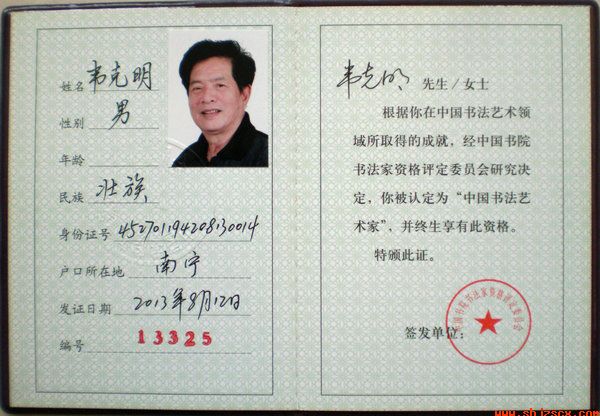 姓名 韦克明
性别 男
年龄
民族 壮族
身份证号 452701194208130014
户口所在地 南宁
发证日期 2013年8月12日
编号 13325
韦克明 先生/女士
根据你在中国书法艺术领
域所取得的成就，经中国书院
书法家资格评定委员会研究决
定，你被认定为“中国书法艺
术家”，并终生享有此资格。
特颁此证。
签发单位：
中国书院书法家资格评定委员会
www.sbjzscx.com